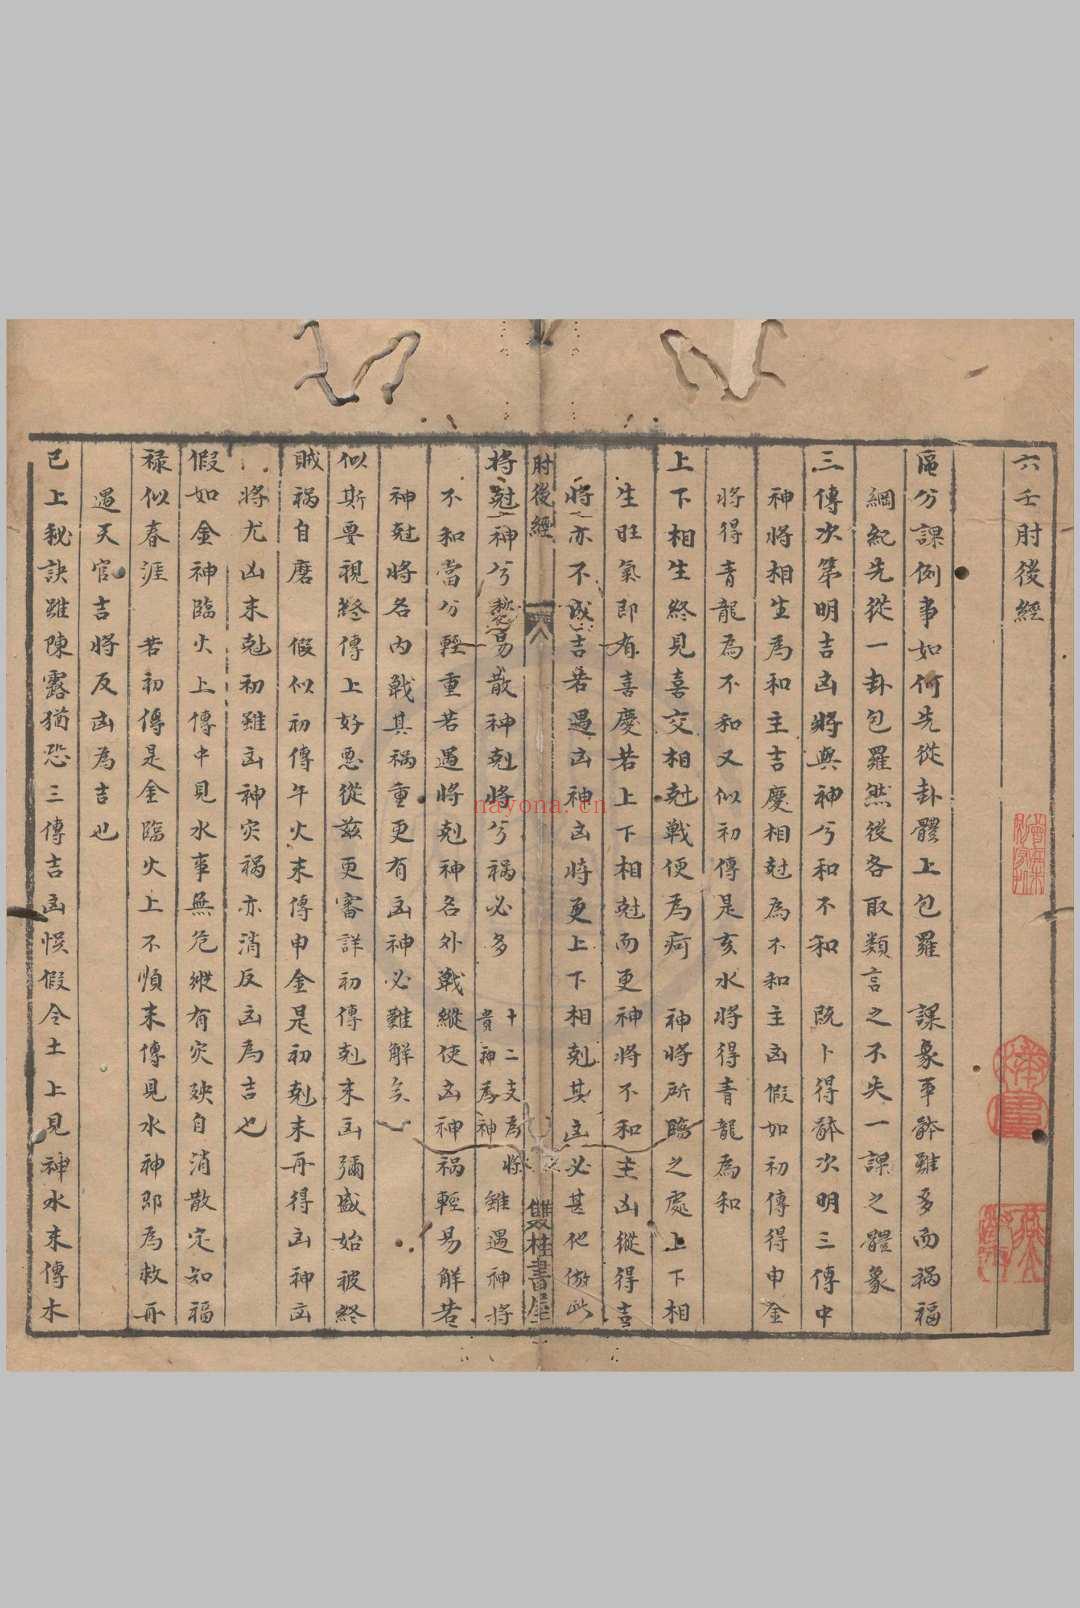 六壬肘後經
區分課例事如何先從卦體上包羅　課象事躰雖多而禍福
綱紀先從一卦包羅然後各取類言之不失一課之體象
三傳次第明吉凶將與神兮和不和　既卜得躰次明三傳中
神將相生爲和主吉慶相尅爲不和主凶假如初傳得申金
將得青龍爲不和又似初傳是亥水將得青龍爲和
上下相生終見喜交相尅戰便爲疴　神將所臨之處上下相
生旺氣即有喜慶若上下相尅而更神將不和主凶縱得吉
將之亦不成吉若遇凶神凶將更上下相剋其凶必甚他倣此
肘後經
雙桂書屋
將尅神兮易散神剋將兮禍必多　十二支爲將貴神爲神　雖遇神將
不和當分輕重若遇將剋神名外戰縱使凶神禍輕易解若
神尅將名內戰其禍重更有凶神必難解矣
似斯要視終傳上好惡從茲更審詳初傳剋末凶彌盛始被終
賊禍自磨　假似初傳午火末傳申金是初剋末再得凶神凶
將尤凶末尅初雖凶神災禍亦消反凶爲吉也
假如金神臨火上傳中見水事無危縱有災殃自消散定知福
祿似春涯　若初傳是金臨火上不順末傳見水神卽爲救再
遇天官吉將反凶爲吉也
已上秘訣雖陳露猶恐三傳吉凶悞假令土上見神水末傳木
nayona.cn